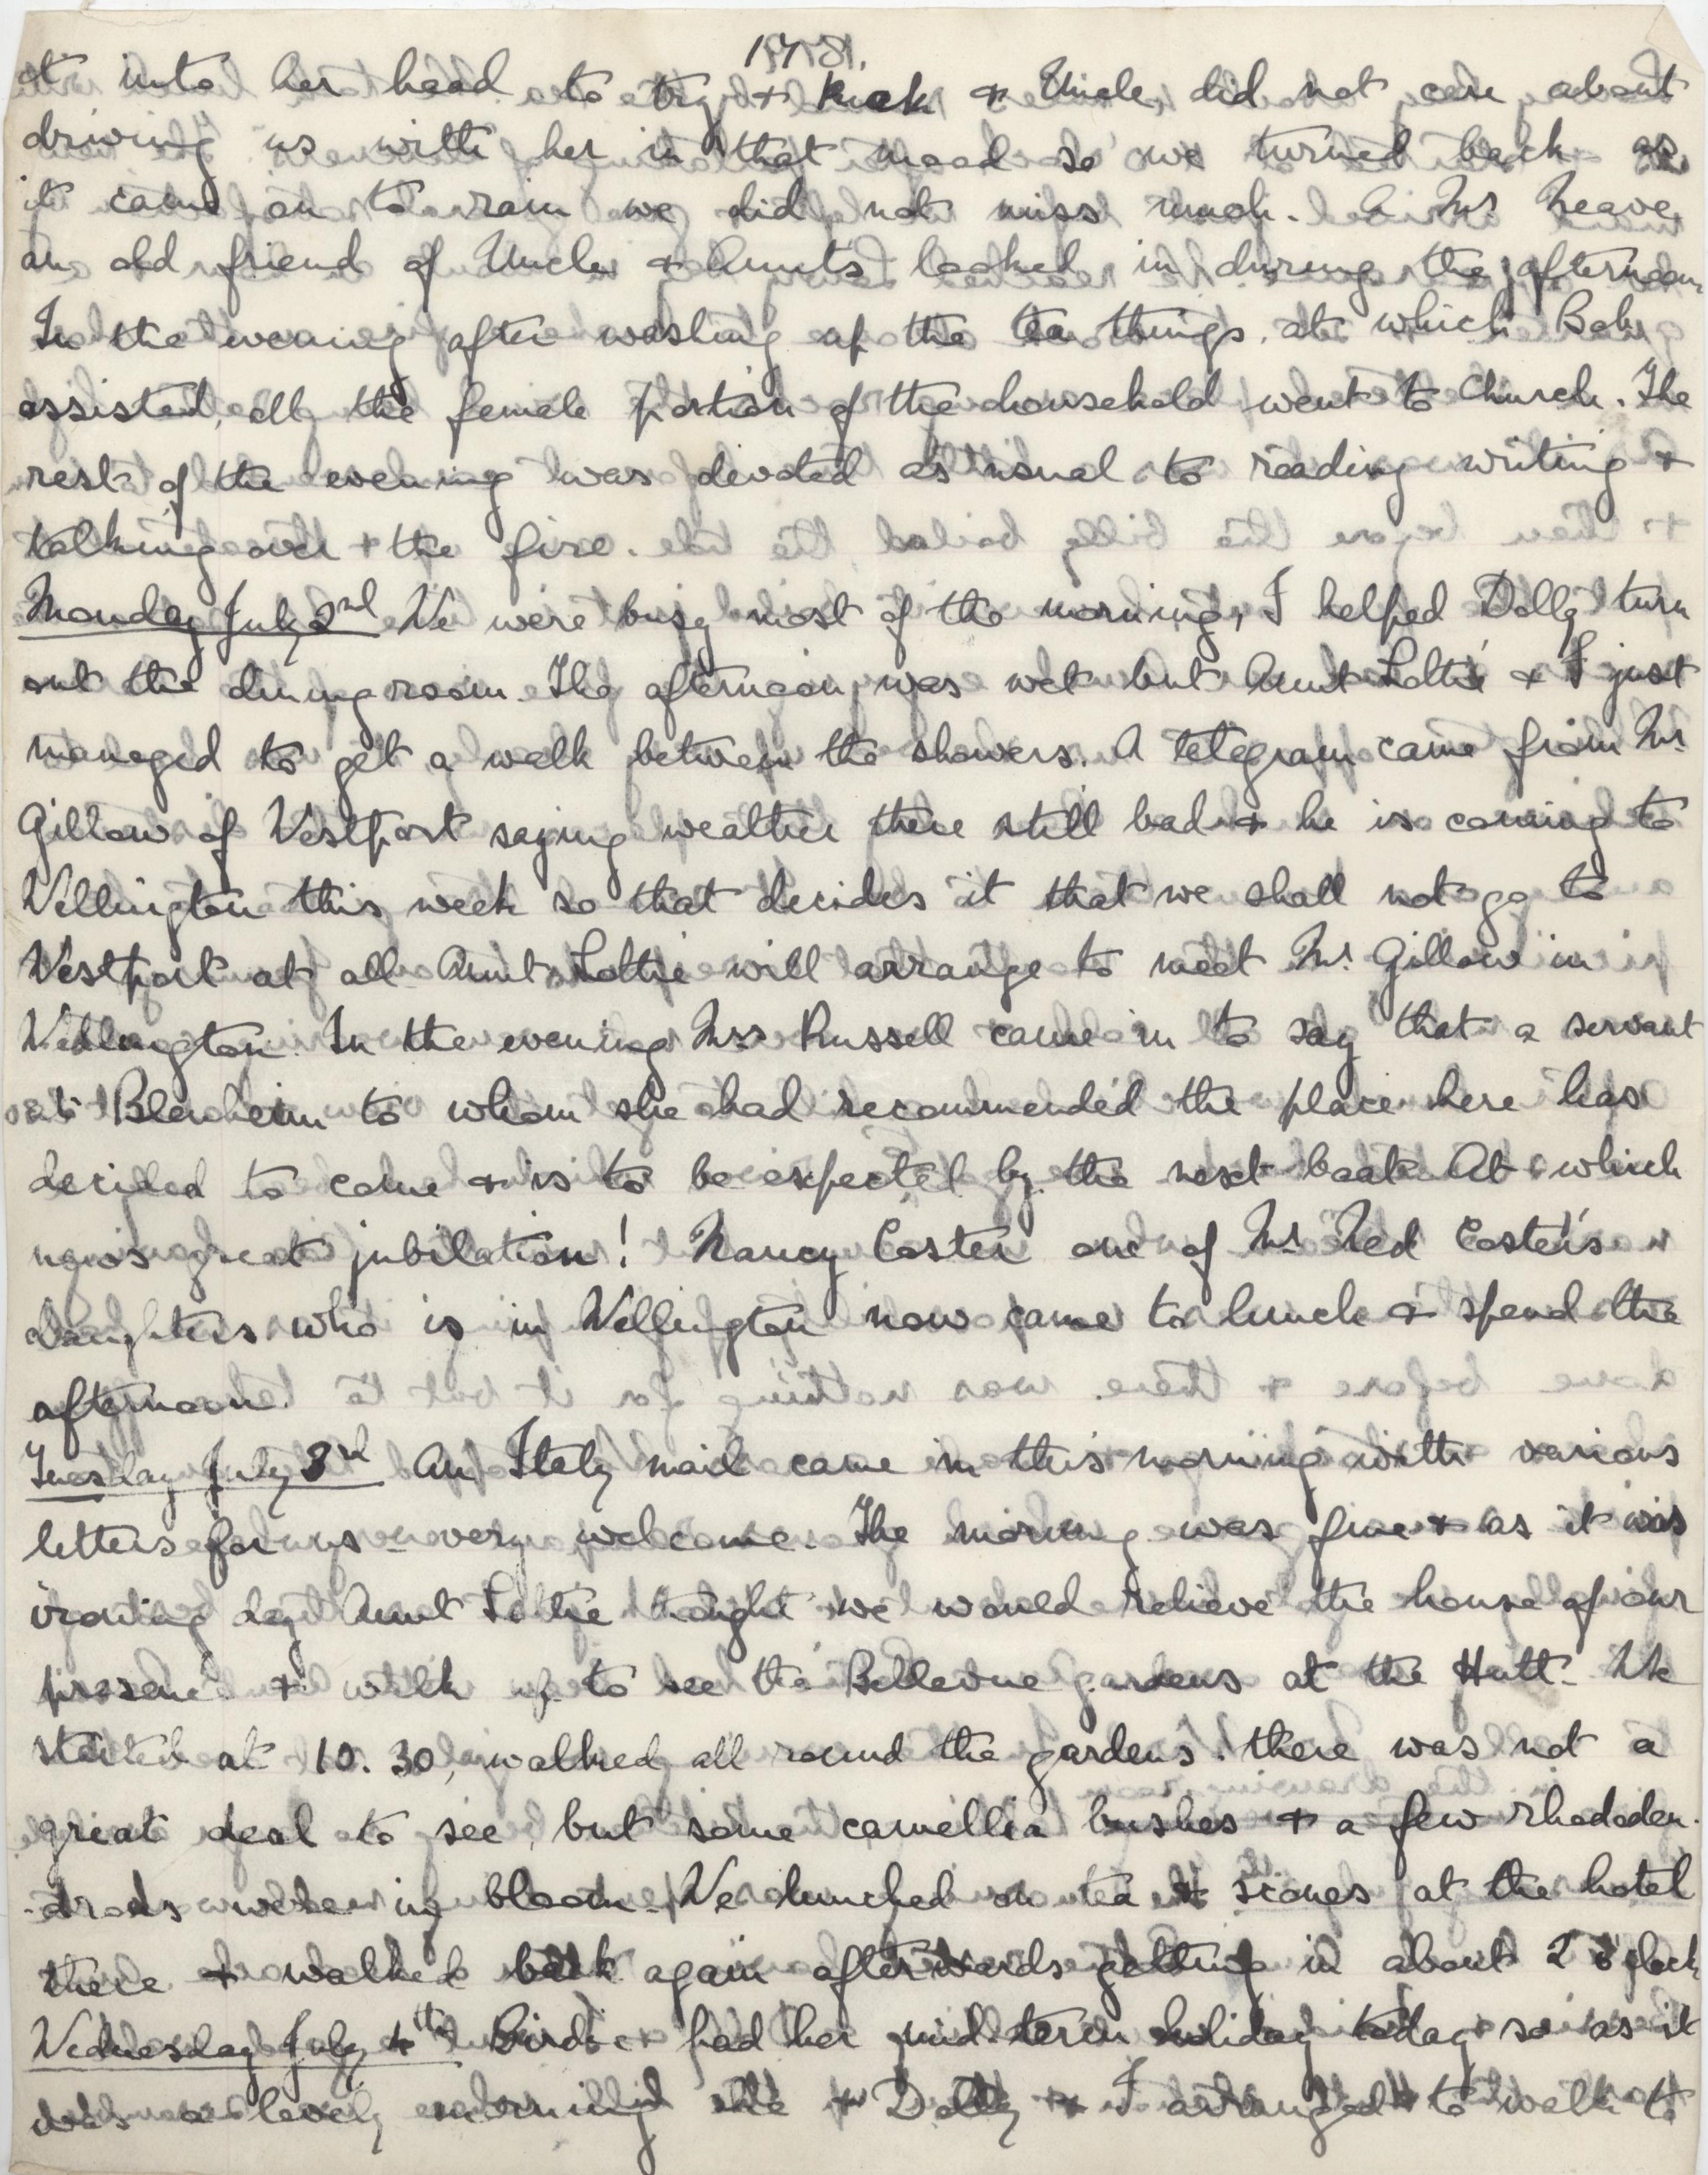 it into her head to try & kick & Uncle did not care about
driving us with her in that mood so we turned back as
it came on to rain we did not miss much. A Mr. Neave
an old friend of Uncle & Aunt's looked in during the afternoon
In the evening after washing up the tea things, at which Bob
assisted, all the female portion of the household went to Church. The
rest of the evening was devoted as usual to reading writing &
talking over the fire.
Monday July 2nd We were busy most of the morning, I helped Dolly turn
out the dining room. The afternoon was wet but Aunt Lottie & I just
managed to get a walk between the showers. A telegram came from Mr.
Gillow of Westport saying weather there still bad & he is coming to
Wellington this week so that decides it that we shall not go to
Westport at all. Aunt Lottie will arrange to meet Mr. Gillow in
Wellington. In the evening Mrs Russell came in to say that a servant
at Blenheim to whom she had recommended the place here has
decided to come & is to be expected by the next boat. At which
news great jubilation! Nancy Coster one of Mr. Ned Coster's
daughters who is in Wellington now came to lunch & spend the
afternoon.
Tuesday July 3rd An Italy mail came in this morning with various
letters for us - very welcome. The morning was fine & as it was
ironing day Aunt Lottie thought we would relieve the house of our
presence & walk up to see the Bellevue gardens at the Hutt. We
started at 10.30, walked all round the gardens. there was not a
great deal to see, but some camellia bushes & a few rhododen-
-drons were in bloom. We lunched on tea & scones at the hotel
there & walked back again afterwards getting in about 2 o'clock
Wednesday July 4th Birdie had her mid-term holiday today so as it
was a lovely morning she & Dolly & I arranged to walk to